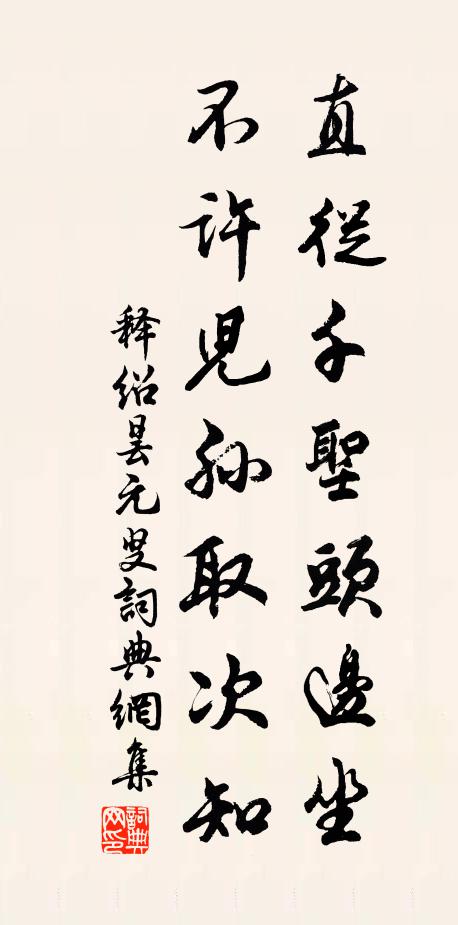 直從千聖頭邊坐
不許児孫取次知
释绍昙元叟詞典網集
詞典网印